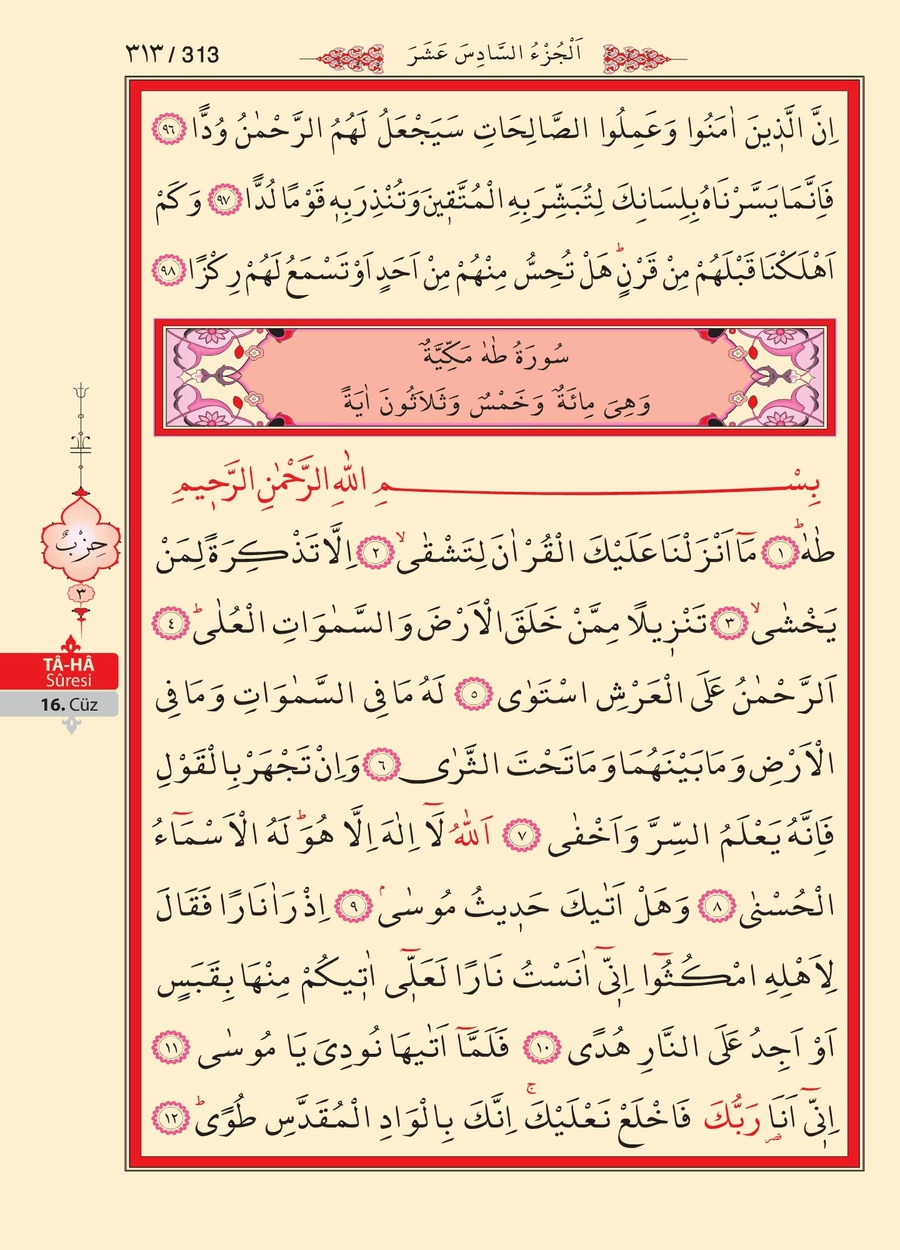 ٣١٣ / 313
اَلْجُزْءُ السَّادِسَ عَشَرَ
اِنَّ الَّذ۪ينَ اٰمَنُوا وَعَمِلُوا الصَّالِحَاتِ سَيَجْعَلُ لَهُمُ الرَّحْمٰنُ وُدًّا ٩٦
فَاِنَّمَا يَسَّرْنَاهُ بِلِسَانِكَ لِتُبَشِّرَ بِهِ الْمُتَّق۪ينَ وَتُنْذِرَ بِه۪ قَوْمًا لُدًّا ٩٧ وَكَمْ
اَهْلَكْنَا قَبْلَهُمْ مِنْ قَرْنٍۜ هَلْ تُحِسُّ مِنْهُمْ مِنْ اَحَدٍ اَوْ تَسْمَعُ لَهُمْ رِكْزًا ٩٨
سُورَةُ طٰهٰ مَكِّيَّةٌ
وَهِىَ مِائَةٌ وَخَمْسٌ وَثَلَاثُونَ اٰيَةً
بِسْمِ اللّٰهِ الرَّحْمٰنِ الرَّح۪يمِ
طٰهٰۜ ١ مَٓا اَنْزَلْنَا عَلَيْكَ الْقُرْاٰنَ لِتَشْقٰىۙ ٢ اِلَّا تَذْكِرَةً لِمَنْ
يَخْشٰىۙ ٣ تَنْز۪يلًا مِمَّنْ خَلَقَ الْاَرْضَ وَالسَّمٰوَاتِ الْعُلٰىۜ ٤
اَلرَّحْمٰنُ عَلَى الْعَرْشِ اسْتَوٰى ٥ لَهُ مَا فِى السَّمٰوَاتِ وَمَا فِى
الْاَرْضِ وَمَا بَيْنَهُمَا وَمَا تَحْتَ الثَّرٰى ٦ وَاِنْ تَجْهَرْ بِالْقَوْلِ
فَاِنَّهُ يَعْلَمُ السِّرَّ وَاَخْفٰى ٧ اَللّٰهُ لَٓا اِلٰهَ اِلَّا هُوَۜ لَهُ الْاَسْمَٓاءُ
الْحُسْنٰى ٨ وَهَلْ اَتٰيكَ حَد۪يثُ مُوسٰىۢ ٩ اِذْ رَاٰ نَارًا فَقَالَ
لِاَهْلِهِ امْكُثُٓوا اِنّ۪ٓى اٰنَسْتُ نَارًا لَعَلّ۪ٓى اٰت۪يكُمْ مِنْهَا بِقَبَسٍ
اَوْ اَجِدُ عَلَى النَّارِ هُدًى ١٠ فَلَمَّٓا اَتٰيهَا نُودِىَ يَا مُوسٰى ١١
اِنّ۪ٓى اَنَا۬ رَبُّكَ فَاخْلَعْ نَعْلَيْكَۚ اِنَّكَ بِالْوَادِ الْمُقَدَّسِ طُوًىۜ ١٢
حِزْبٌ
٣
TÂ-HÂ
Sûresi
16. Cüz